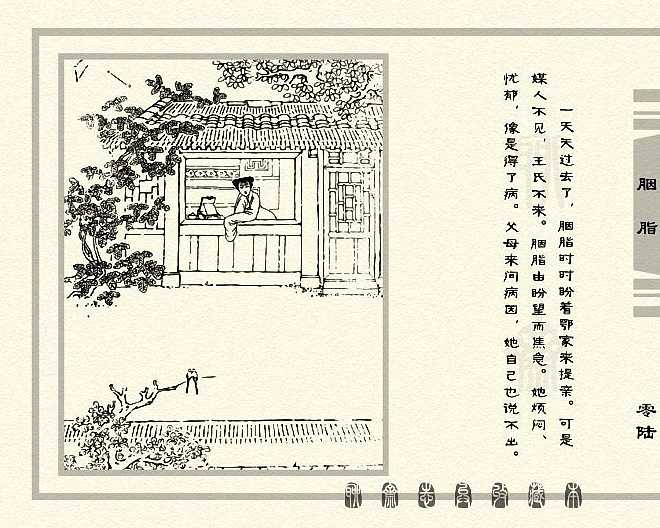 一天天过去了，胭脂时时盼着鄂家来提亲。可是
媒人不见，王氏不来。胭脂由盼望而焦急。她烦闷、
忧郁，像是得了病。父母来问病因，她自己也说不出。
胭脂
零陆